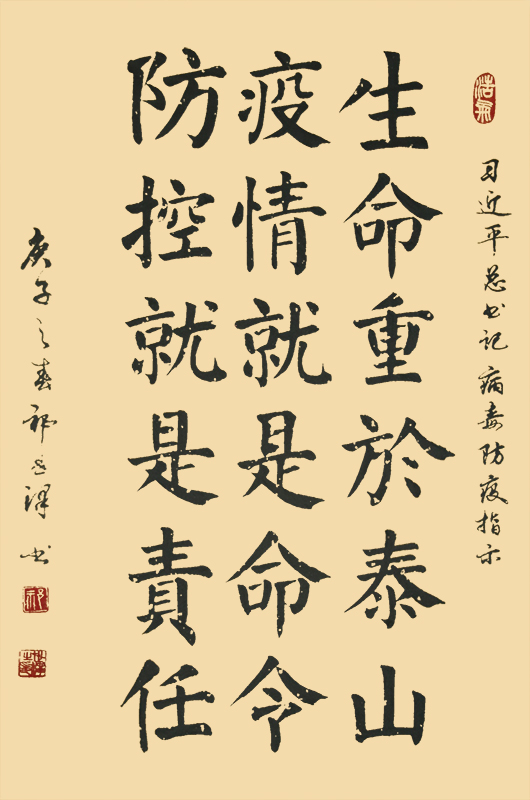 浩氣
习近平总书记病毒防疫指示
生命重於泰山
疫情就是命令
防控就是責任
庚子之春祁志洋书